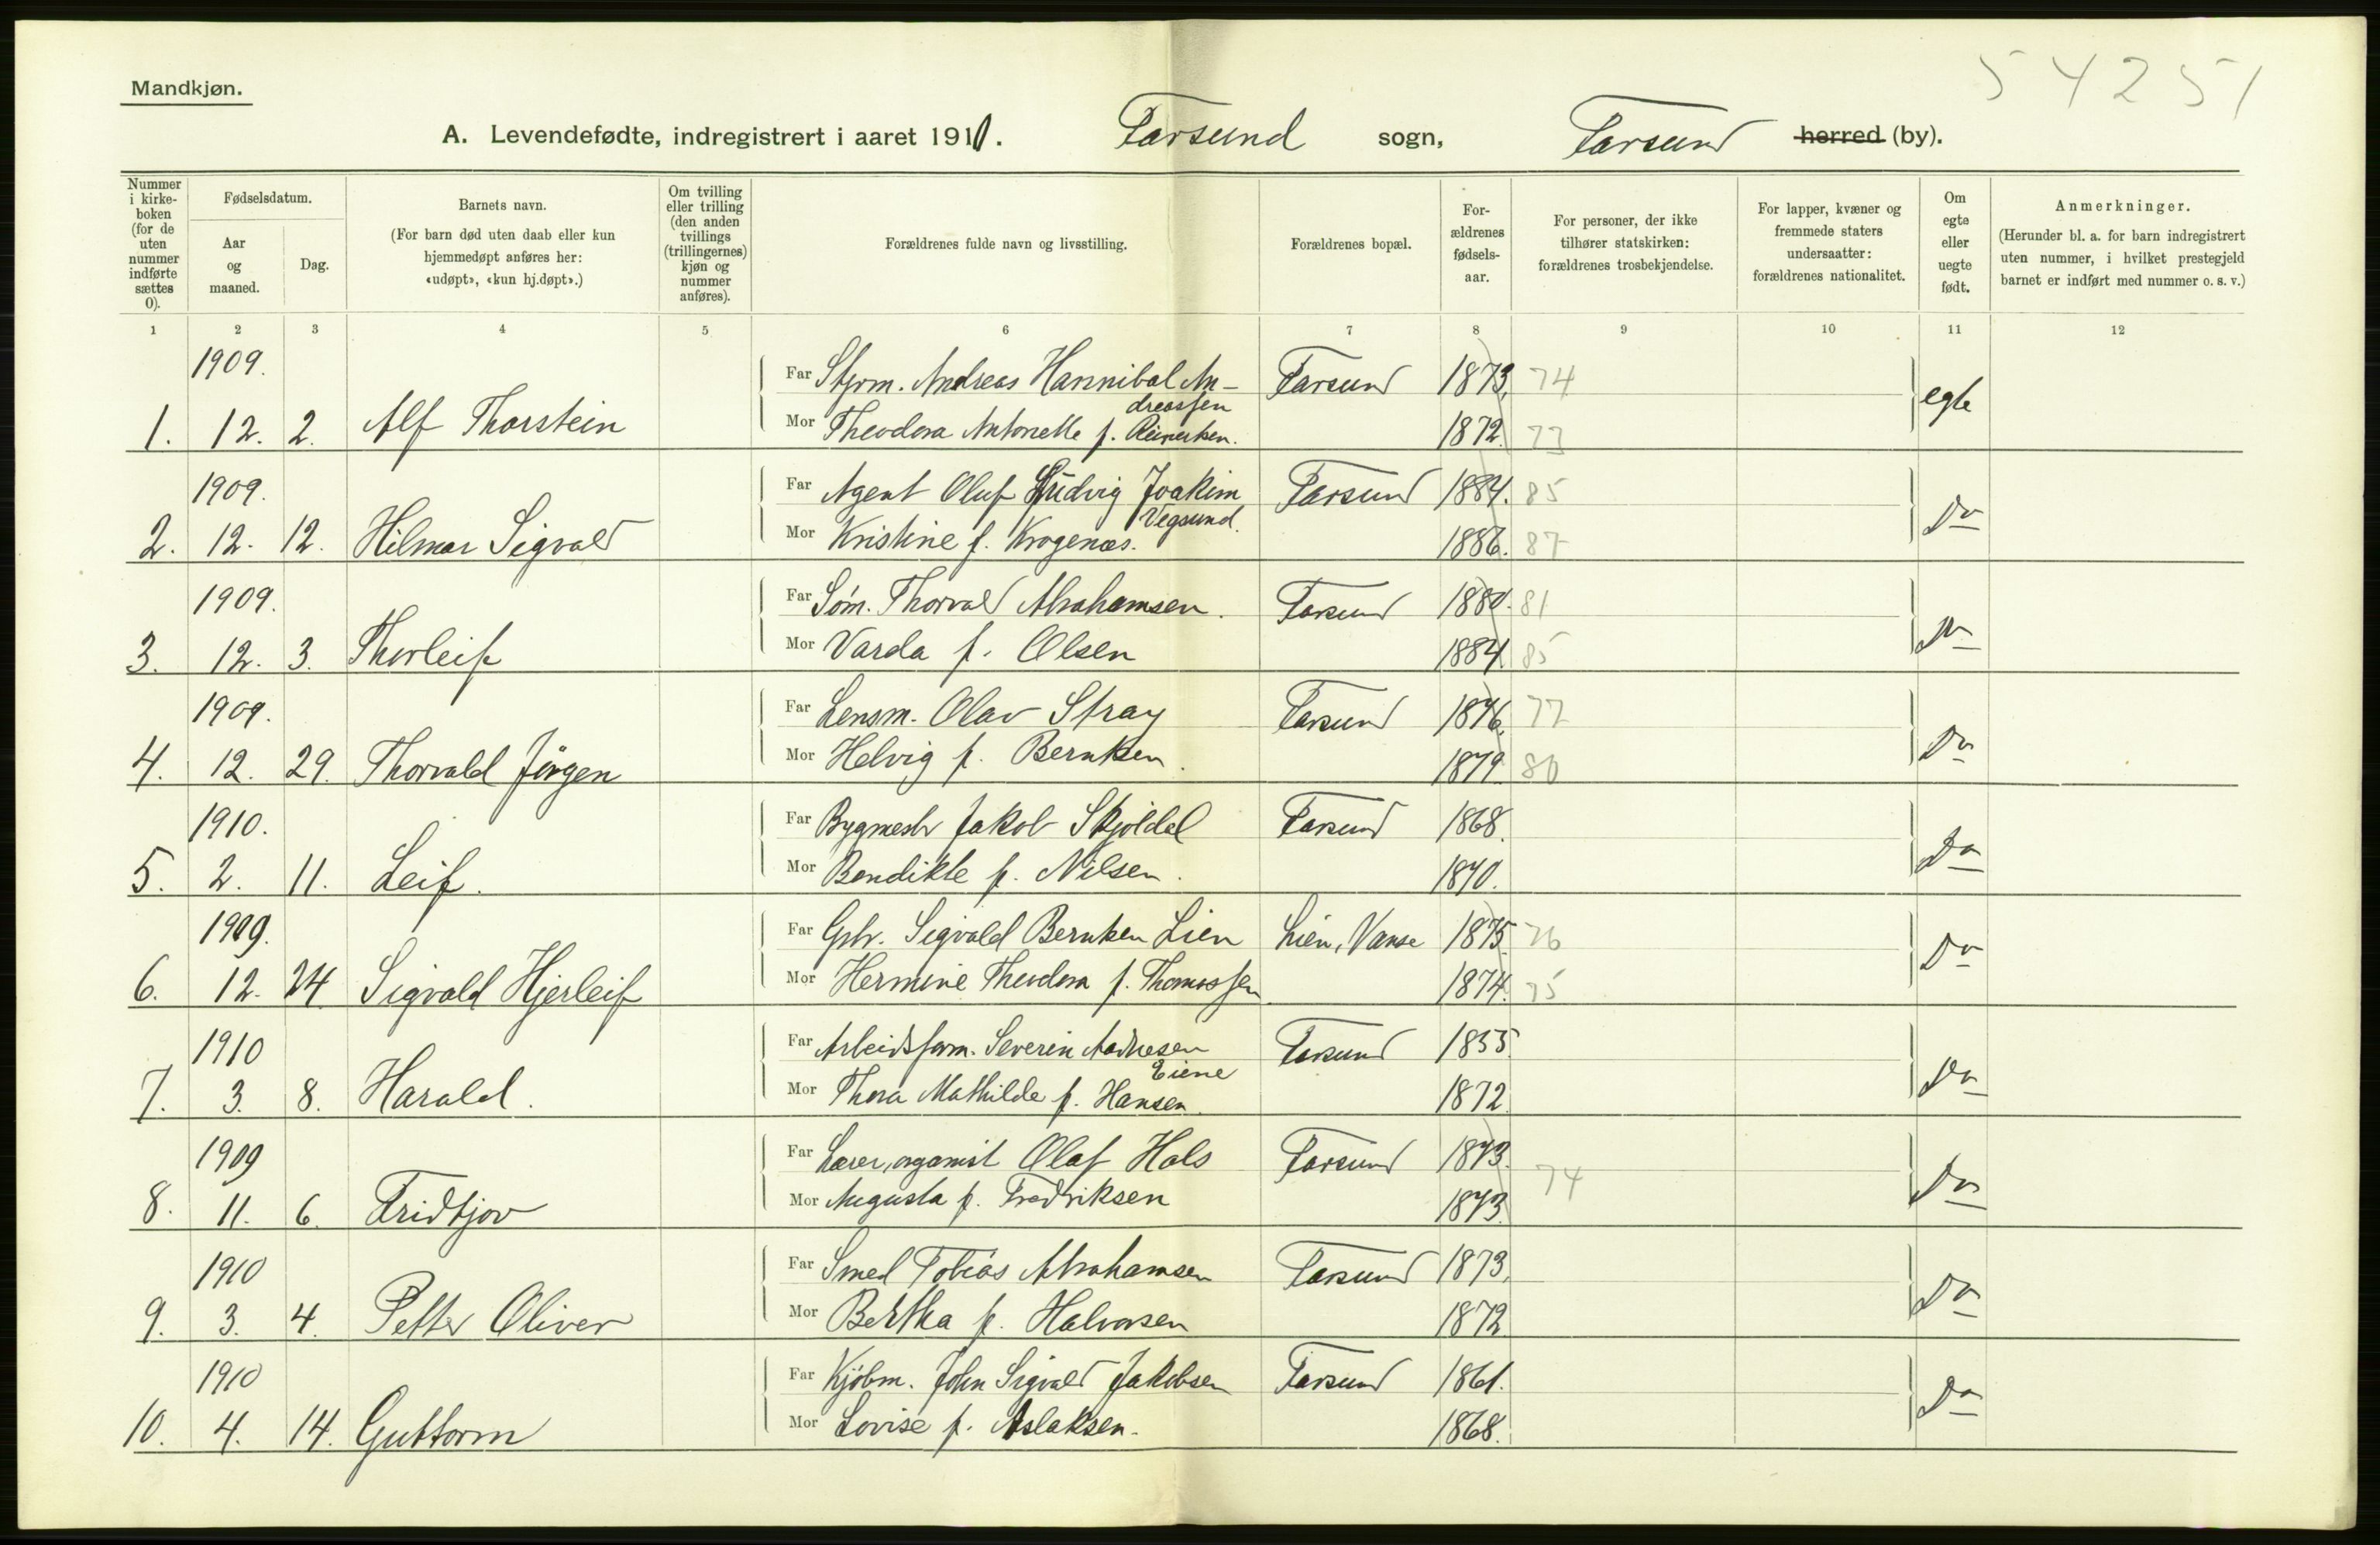 54251
Mandkjøn.
A. Levendefødte, indregistrert i aaret 1910. Farsund sogn, Farsund herred (by).
Nummer i kirkeboken (for de uten nummer indførte sættes 0).
Fødselsdatum.
Aar og maaned.
Dag.
Barnets navn.
(For barn død uten daab eller kun hjemmedøpt anføres her: «udøpt», «kun hj.døpt».)
Om tvilling eller trilling (den anden tvillings (trillingernes) kjøn og nummer anføres).
Forældrenes fulde navn og livsstilling.
Forældrenes bopæl.
For-ældrenes fødsels-aar.
For personer, der ikke tilhører statskirken: forældrenes trosbekjendelse.
For lapper, kvæner og fremmede staters undersaatter: forældrenes nationalitet.
Om egte eller uegte født.
Anmerkninger.
(Herunder bl. a. for barn indregistrert uten nummer, i hvilket prestegjeld barnet er indført med nummer o. s. v.)
1 2 3 4 5 6 7 8 9 10 11 12
1909. Far Styrm. Andreas Hannibal An-dreassen Farsund 1873. 74 egte
1. 12. 2. Alf Thorstein Mor Theodora Antonette f. Reinertsen. 1872. 73
1909. Far Agent Oluf Ludvig Joakim Vegsund. Farsund 1884. 85 Do
2. 12. 12. Hilmar Sigvald Mor Kristine f. Krogenæs. 1886. 87
1909. Far Søm. Thorvald Abrahamsen. Farsund 1880. 81 Do
3. 12. 3. Thorleif Mor Varda f. Olsen 1884 85
1909. Far Lensm. Olav Stray Farsund 1876. 77 Do
4. 12. 29. Thorvald Jörgen Mor Helvig f. Berntsen. 1879. 80
1910. Far Bygmestr Jakob Skjoldal Farsund 1868. Do
5. 2. 11. Leif. Mor Bendikte f. Nilsen. 1870.
1909. Far Gbr. Sigvald Berntsen Lien Lien, Vanse 1875 76 Do
6. 12. 24. Sigvald Hjerleif Mor Hermine Theodora f. Thomassen 1874. 75
1910 Far Arbeidsform. Severin Aadnesen Eiene Farsund 1855 Do
7. 3. 8. Harald. Mor Thora Mathilde f. Hansen. 1872.
1909 Far Lærer, organist Olaf Hals Farsund 1873. 74 Do
8. 11. 6. Fridtjov Mor Augusta f. Fredriksen 1873.
1910 Far Smed Tobias Abrahamsen Farsund 1873. Do
9. 3. 4. Petter Oliver Mor Bertha f. Halvorsen 1872
1910 Far Kjöbm. John Sigvald Jakobsen Farsund 1861. Do
10. 4. 14. Guttorm Mor Lovise f. Aslaksen. 1868.